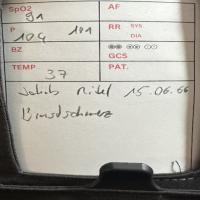 SpO2 91 AF
P 104 101 RR SYS
DIA
BZ
GCS
TEMP 37 PAT.
15.06.66
Brustschmerz